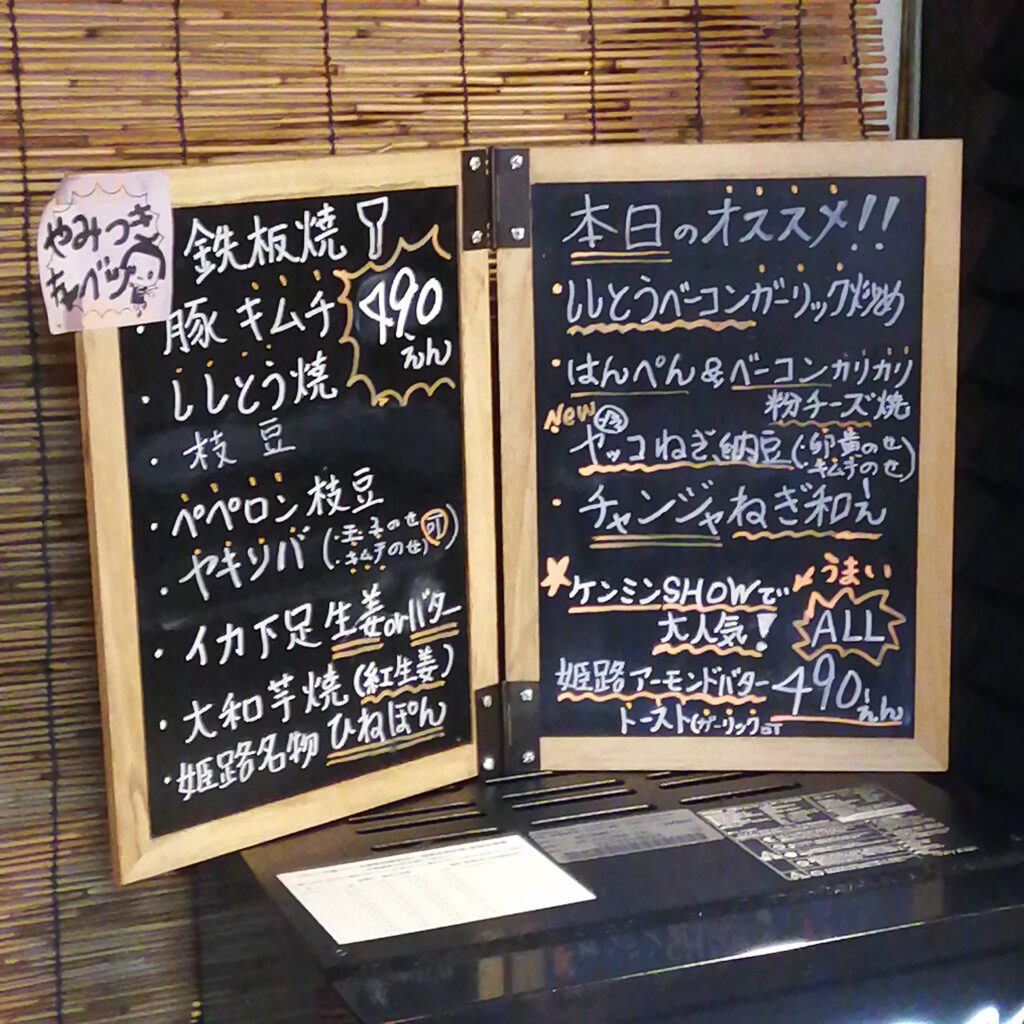 やみつき
キャベツ
鉄板焼
490
えん
・豚キムチ
・ししとう焼
・枝豆
・ペペロン枝豆
・ヤキソバ(・玉子のせ
・キムチのせ)可
・イカ下足生姜orバター
・大和芋焼(紅生姜)
・姫路名物ひねぽん
本日のオススメ!!
・ししとうベーコンガーリック炒め
・はんぺん&ベーコンカリカリ
粉チーズ焼
New
ヤッコねぎ、納豆(・卵黄のせ
・キムチのせ)
・チャンジャねぎ和え
ケンミンSHOWで
大人気!
うまい
ALL
490えん
姫路アーモンドバター
トースト(ガーリック可